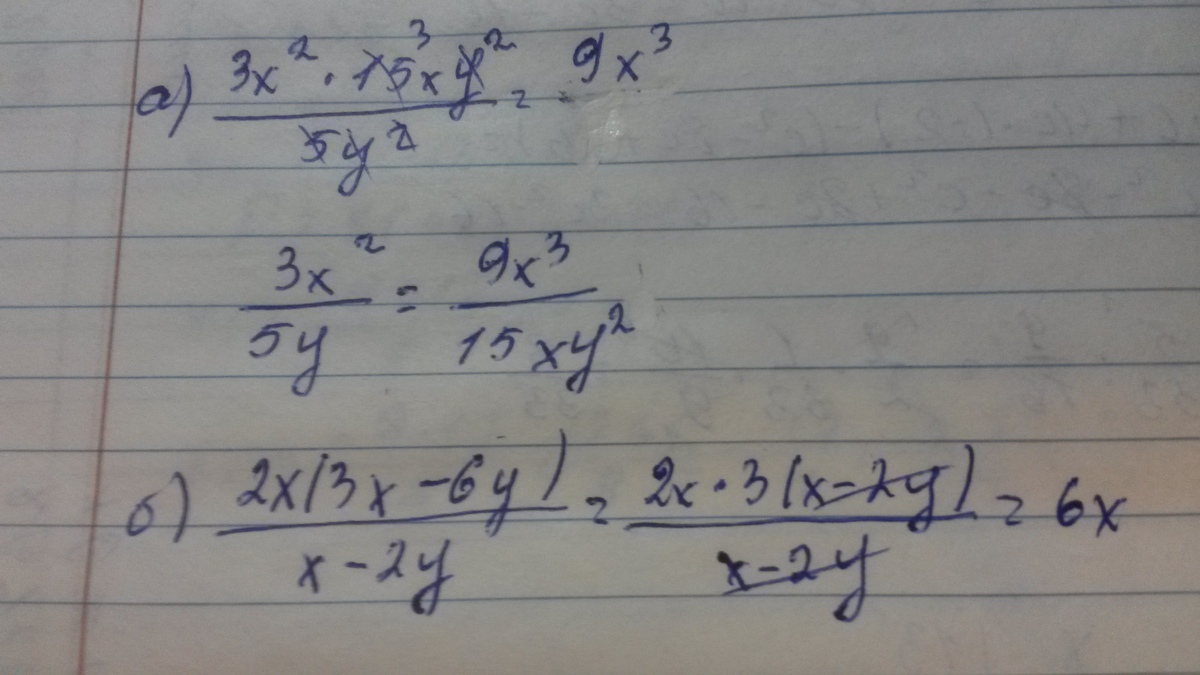 а) (3x² · 15³xy²)/(5y²) = 9x³
3x²/5y = 9x³/15xy²
б) 2x(3x - 6y)/(x - 2y) = 2x · 3(x - 2y)/(x - 2y) = 6x